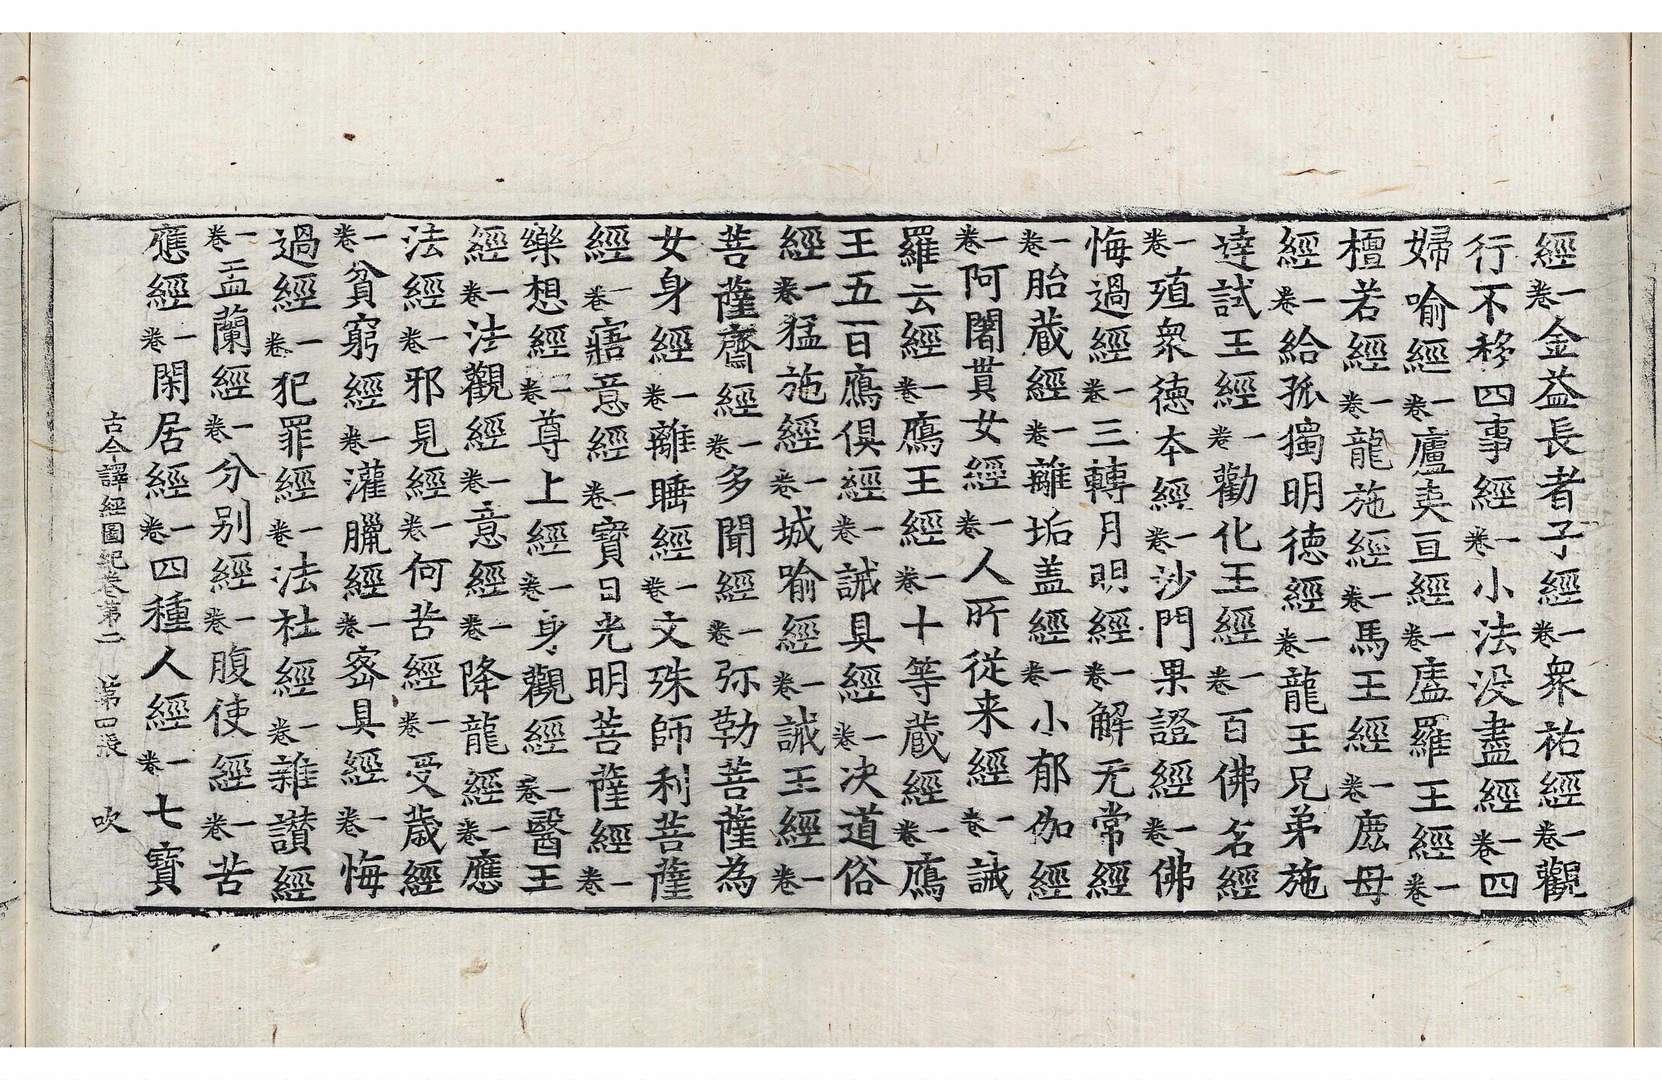 經一卷金益長者子經一卷衆祐經一卷觀
行不移四事經一卷小法没盡經一卷四
婦喻經一卷廬夷亘經一卷廬羅王經一卷
檀若經一卷龍施經一卷馬王經一卷鹿母
經一卷給孤獨明德經一卷龍王兄弟施
達試王經一卷勸化王經一卷百佛名經
一卷殖衆德本經一卷沙門果證經一卷佛
悔過經一卷三轉月明經一卷解无常經
一卷胎藏經一卷離垢盖經一卷小郁伽經
一卷阿闍貰女經一卷人所從来經一卷誡
羅云經一卷鴈王經一卷十等藏經一卷鴈
王五百鴈俱經一卷誡具經一卷决道俗
經一卷猛施經一卷城喻經一卷誡王經一卷
菩薩齋經一卷多聞經一卷弥勒菩薩為
女身經一卷離睡經一卷文殊師利菩薩
經一卷寤意經一卷寶日光明菩薩經一卷
樂想經一卷尊上經一卷身觀經一卷醫王
經一卷法觀經一卷意經一卷降龍經一卷應
法經一卷邪見經一卷何苦經一卷受歲經
一卷貧窮經一卷灌臘經一卷密具經一卷悔
過經一卷犯罪經一卷法社經一卷雜讃經
一卷盂蘭經一卷分别經一卷腹使經一卷苦
應經一卷閑居經一卷四種人經一卷七寳
古今譯經圖紀卷第二 第四張 吹